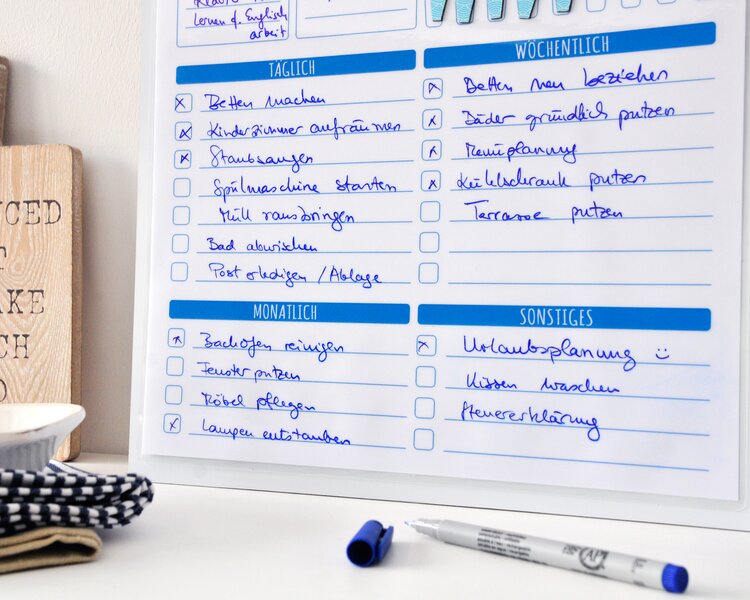 Lernen f. Englisch
arbeit
TÄGLICH
Betten machen
Kinderzimmer aufräumen
Staubsaugen
Spülmaschine starten
Müll rausbringen
Bad abwischen
Post erledigen / Ablage
WÖCHENTLICH
Betten neu beziehen
Bäder gründlich putzen
Menüplanung
Kühlschrank putzen
Terrasse putzen
MONATLICH
Backofen reinigen
Fenster putzen
Möbel pflegen
Lampen entstauben
SONSTIGES
Urlaubsplanung
Kissen waschen
Steuererklärung